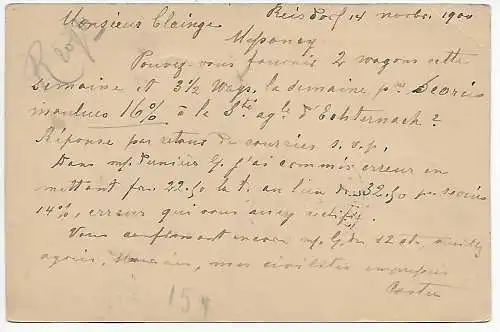 Reisdorf 14 novbr. 1900
Monsieur Clainge
R
Messancy
Pouvez-vous fournir 2 wagons cette
semaine et 3 1/2 wag. la semaine pne Scories
moulues 16% à la Sté agle d'Echternach ?
Réponse par retour de courrier s. v. p.
Dans m/ dernière j'ai commis erreur en
mettant frs. 22.50 la t. au lieu de 32.50 p. scories
14%, erreur qui vous aurez rectifié.
Vous confirmant encore m/ du 12 ct, veuillez
agréer, Monsieur, mes civilités empressées
154